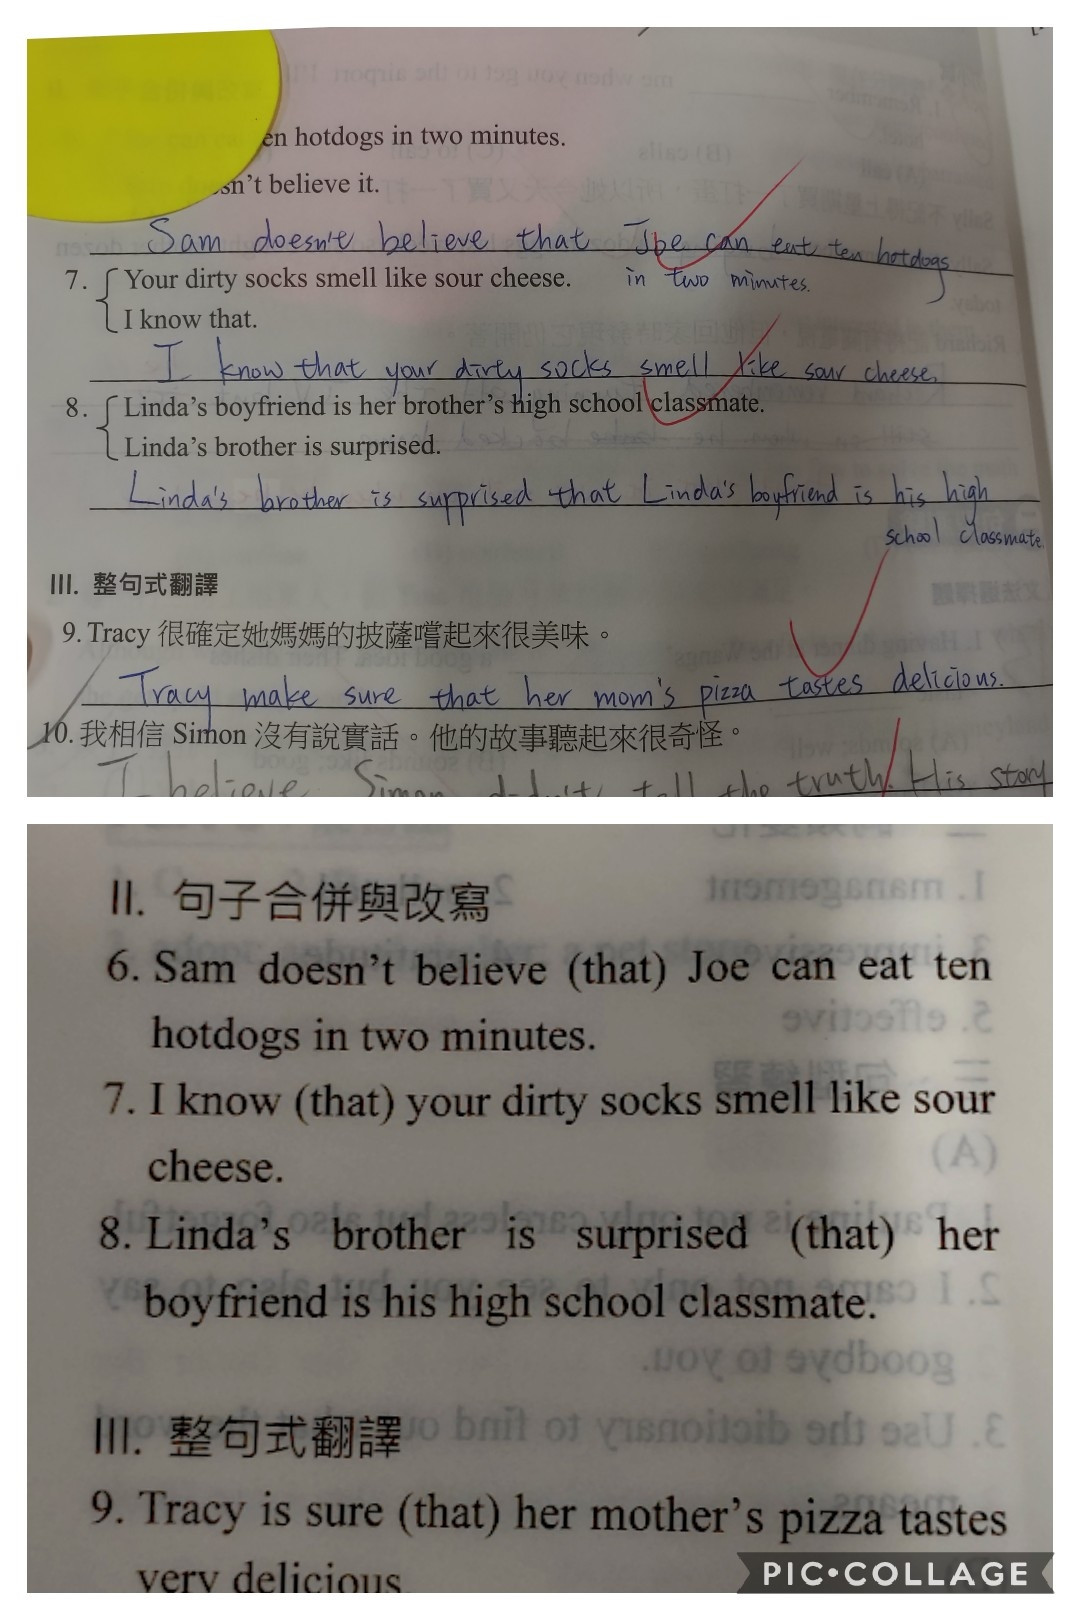 hotdogs in two minutes.
believe it.
Sam doesn't believe that Joe can eat ten hotdogs
in two minutes.
7. Your dirty socks smell like sour cheese.
I know that.
I know that your dirty socks smell like sour cheese.
8. Linda's boyfriend is her brother's high school classmate.
Linda's brother is surprised.
Linda's brother is surprised that Linda's boyfriend is his high
school classmate.
III. 整句式翻譯
9. Tracy 很確定她媽媽的披薩嚐起來很美味。
Tracy make sure that her mom's pizza tastes delicious.
10. 我相信 Simon 沒有說實話。他的故事聽起來很奇怪。
I believe Simon didn't tell the truth. His story
II. 句子合併與改寫
6. Sam doesn't believe (that) Joe can eat ten
hotdogs in two minutes.
7. I know (that) your dirty socks smell like sour
cheese.
8. Linda's brother is surprised (that) her
boyfriend is his high school classmate.
III. 整句式翻譯
9. Tracy is sure (that) her mother's pizza tastes
very delicious.
PIC•COLLAGE